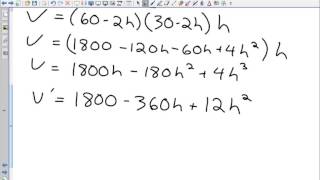 V = (60-2h)(30-2h)h
V = (1800 -120h -60h +4h²)h
V = 1800h -180h² +4h³
V' = 1800 - 360h + 12h²